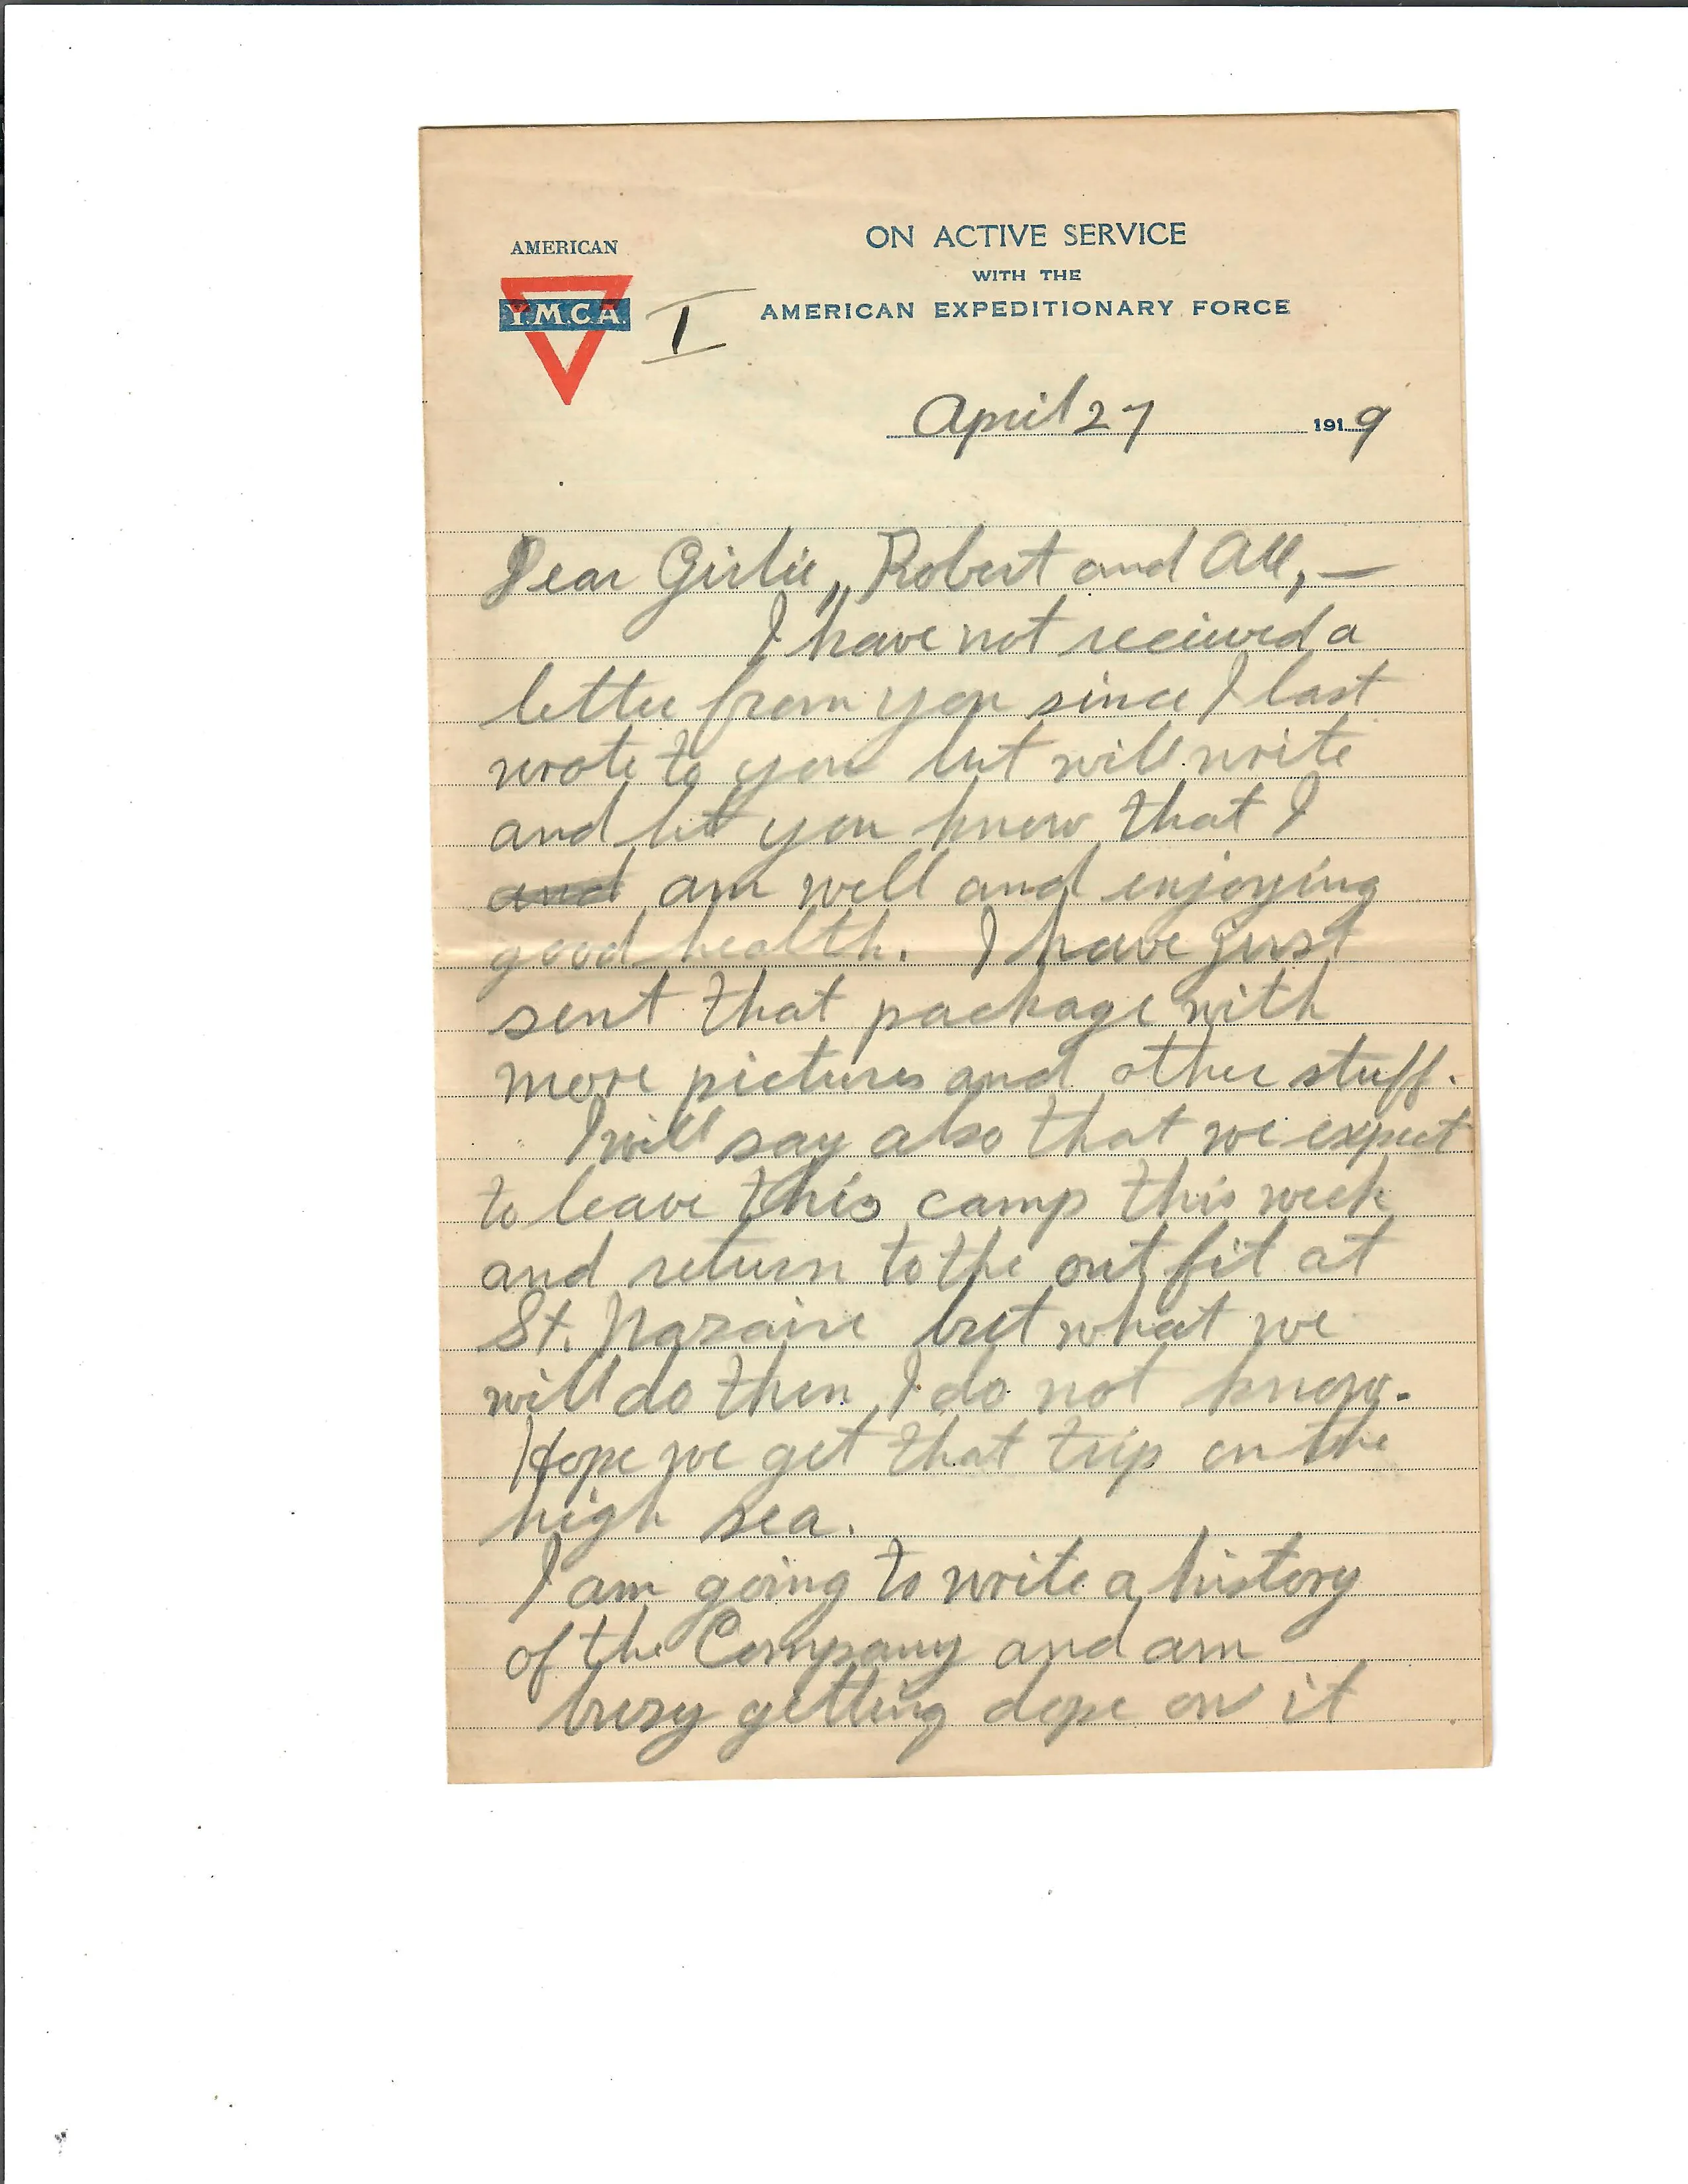 AMERICAN
Y.M.C.A.
I
ON ACTIVE SERVICE
WITH THE
AMERICAN EXPEDITIONARY FORCE
April 27 1919
Dear Girlie, Robert and All, —
I have not recieved a
letter from you since I last
wrote to you but will write
and let you know that I
and am well and enjoying
good health. I have just
sent that package with
more pictures and other stuff.
I will say also that we expect
to leave this camp this week
and return to the outfit at
St. Nazaire but what we
will do then I do not know.
Hope we get that trip on the
high sea.
I am going to write a history
of the Company and am
busy getting dope on it